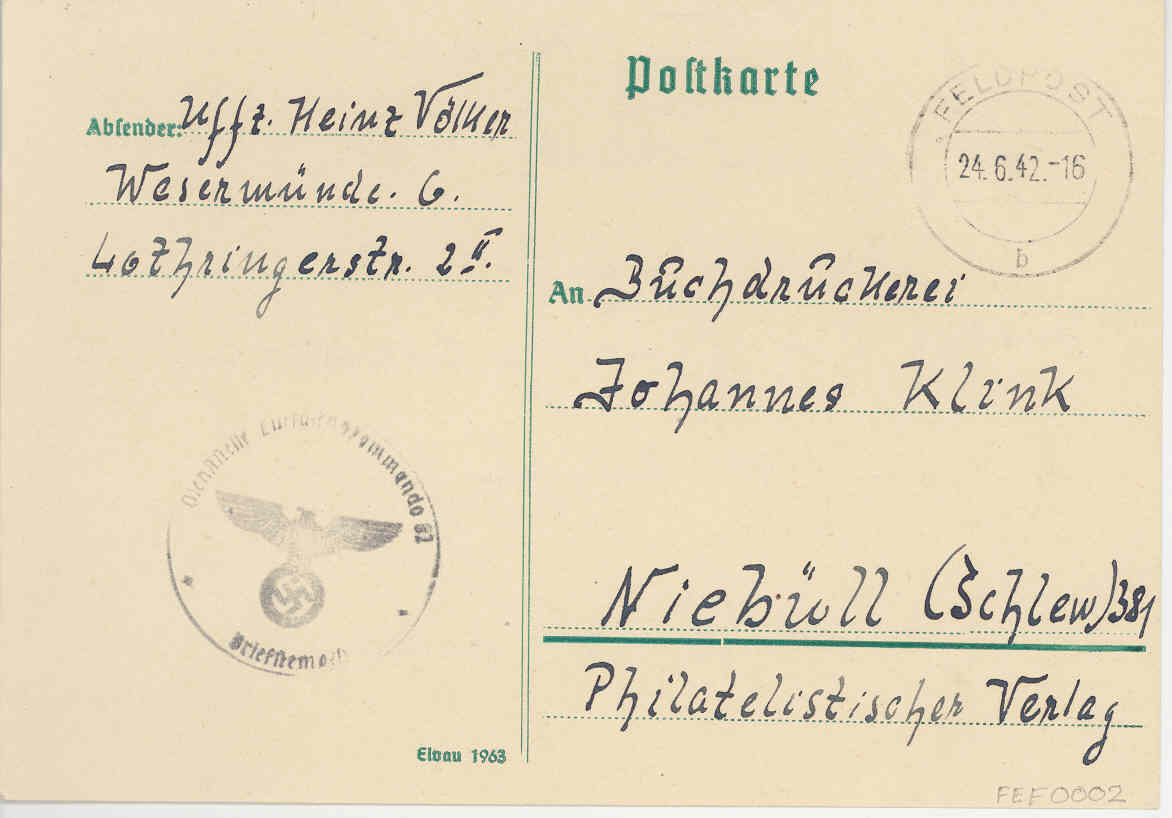 Postkarte
Absender: Uffz. Heinz Völker
Wesermünde. G.
Lothringerstr. 2 II.
FELDPOST
24.6.42.-16
b
An Buchdruckerei
Johannes Klink
Niebüll (Schlew) 381
Philatelistischer Verlag
Dienststelle
Briefstempel
Elvau 1963
FEF0002